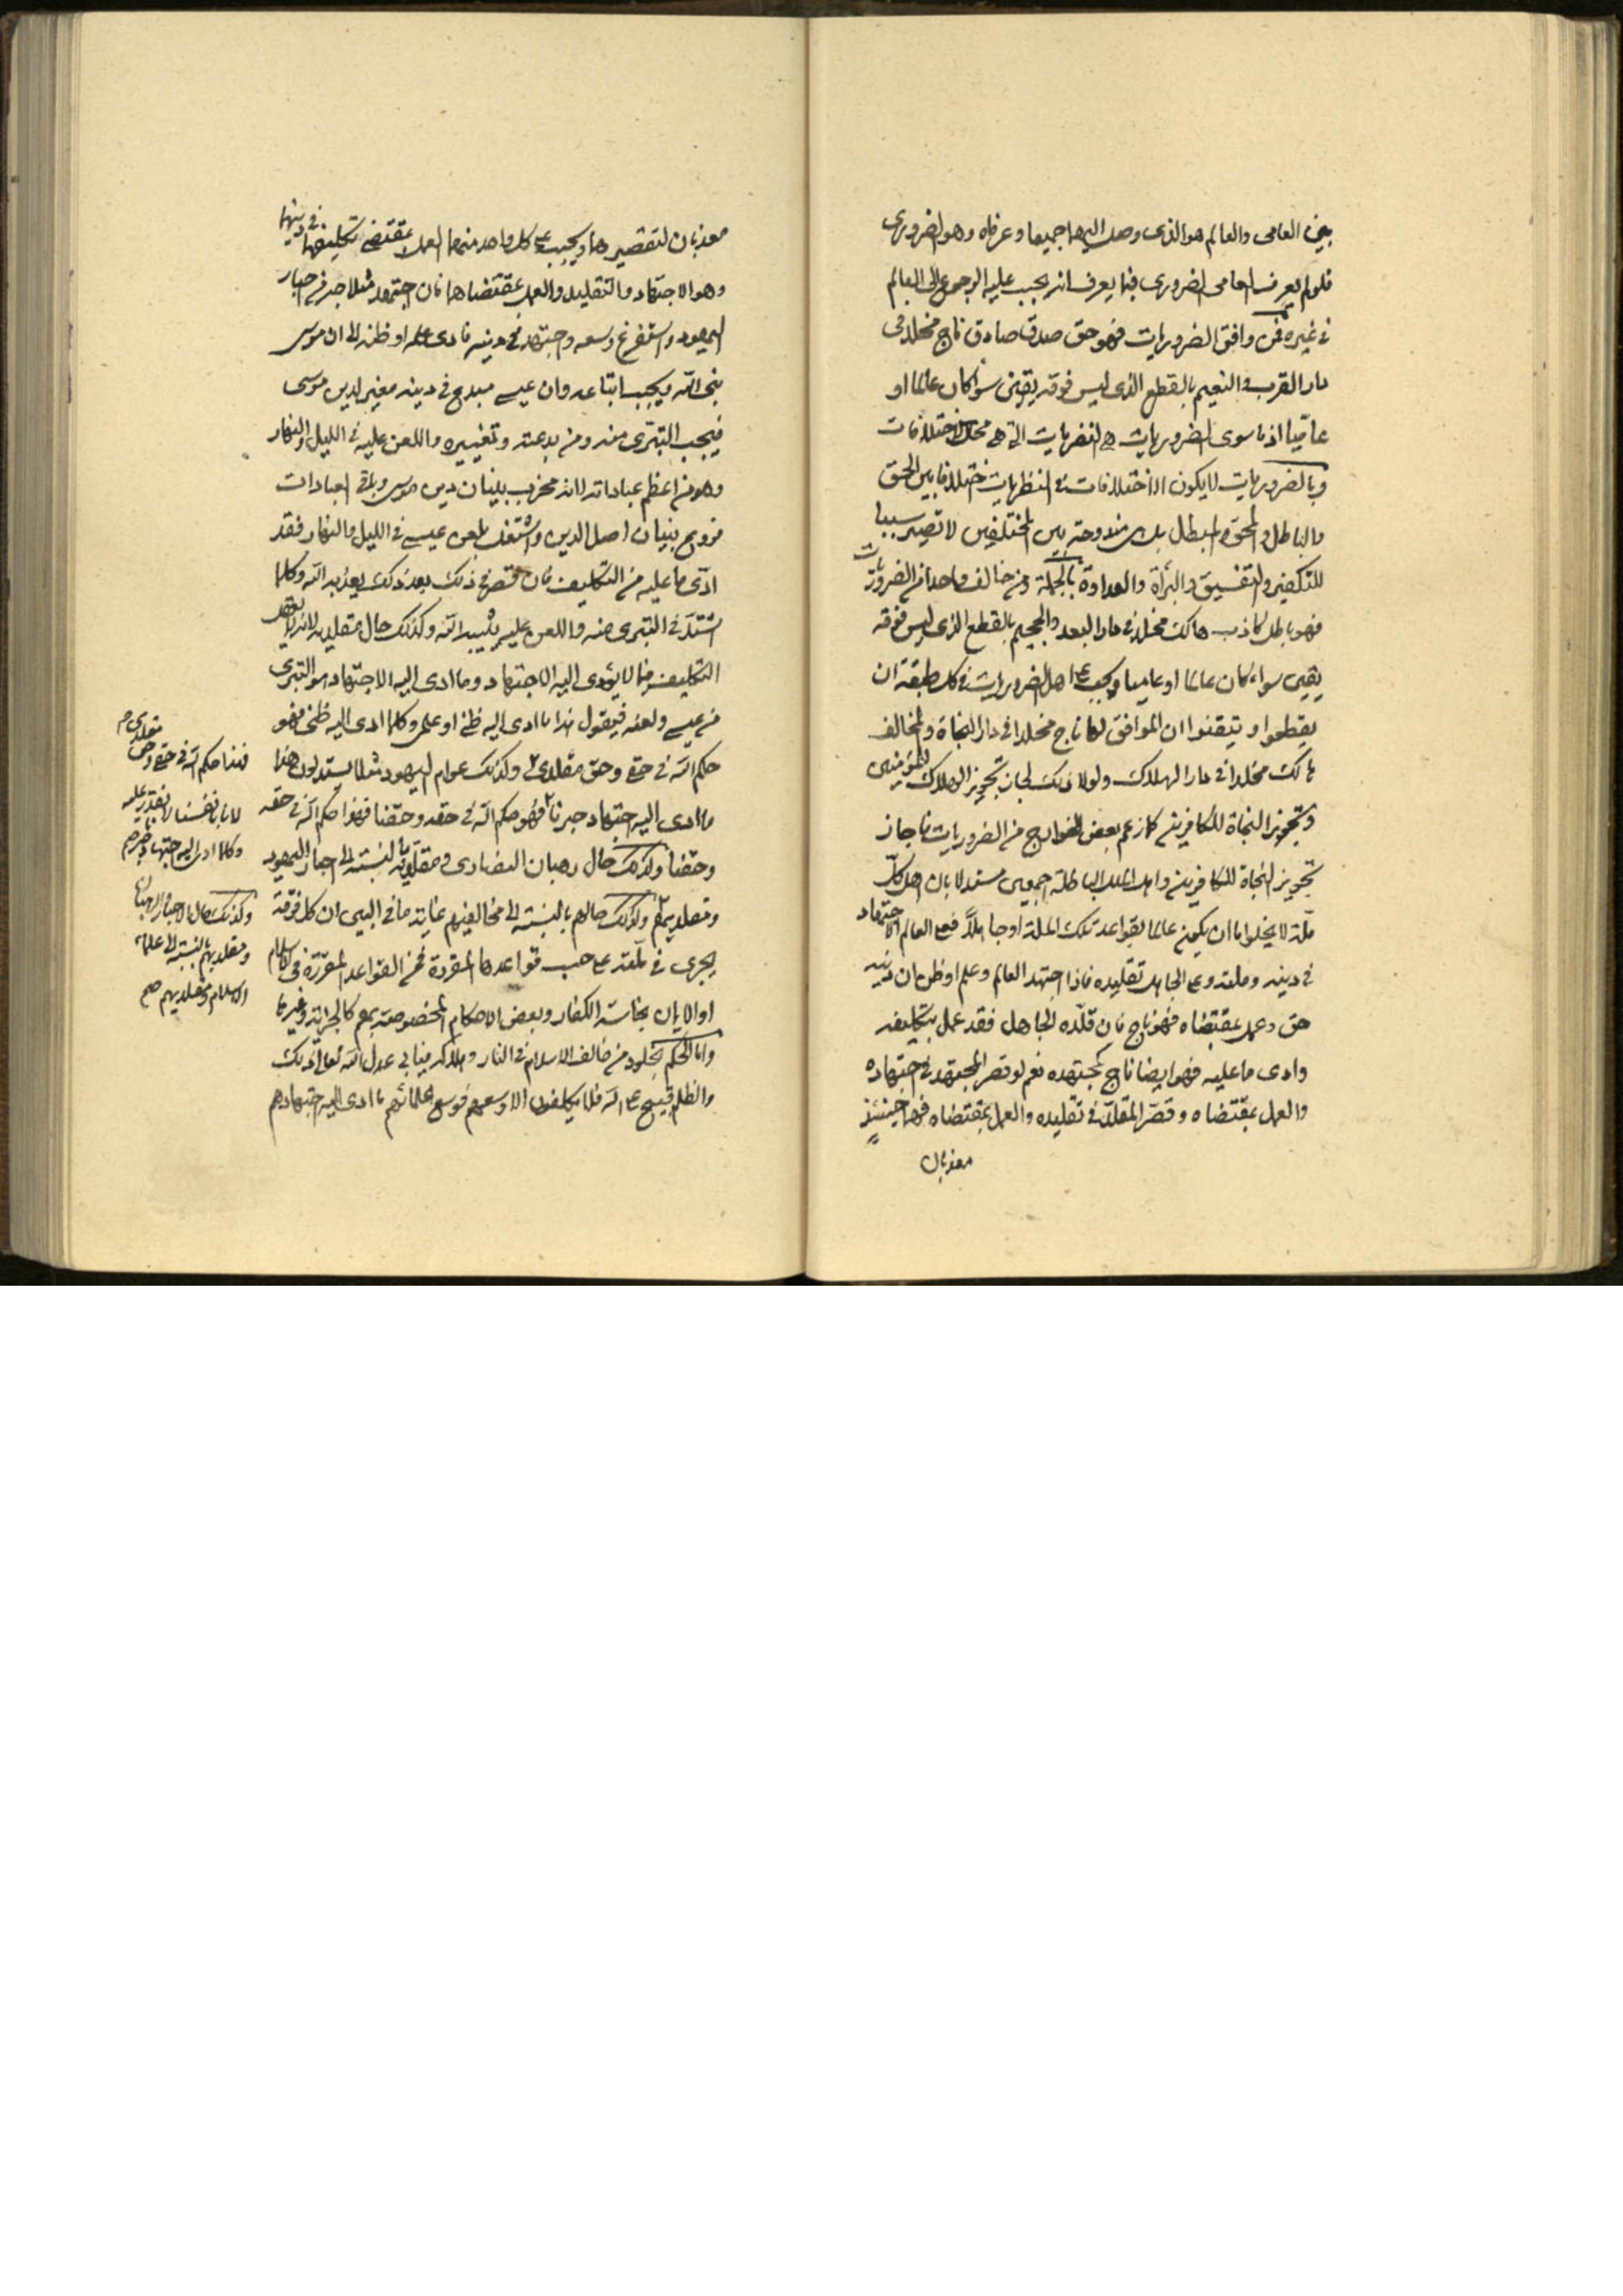 بين العامى والعالم هو الذى وصل اليهما جميعا وعرفاه وهو الضرورى
فلو لم يعرف العامى الضرورى فبما يعرف انه يجب عليه الرجوع الى العالم
فى غيره فمن وافق الضروريات فهو حق صدق صادق ناج مخلد فى
دار القرب والنعيم بالقطع الذى ليس فوقه يقين سواء كان عالما او
عاميا اذ ما سوى الضروريات هى النظريات التى هى محل الاختلافات
وبالضروريات لا يكون الاختلافات فى النظريات اختلافا بين الحق
والباطل والمحق والمبطل بل مندوحة بين المختلفين لا تصير سببا
للتكفير والتفسيق والبرأة والعداوة بالجملة ومن خالف واحدا من الضروريات
فهو باطل كاذب هالك مخلد فى دار البعد والجحيم بالقطع الذى ليس فوقه
يقين سواء كان عالما او عاميا ويجب على اهل الضروريات فى كل طبقة ان
يقطعوا ويتيقنوا ان الموافق لها ناج مخلدا فى دار النجاة والمخالف
هالك مخلدا فى دار الهلاك ولولا ذلك لجاز تجويز الهلاك للمؤمنين
وتجويز النجاة للكافرين كما زعم بعض الخوارج من الضروريات فاجاز
تجويز النجاة للكافرين واهل الملل الباطلة اجمعين مستدلا بان اهل كل
ملة لا يخلوا اما ان يكون عالما بقواعد تلك الملة او جاهلا فعلى العالم الاجتهاد
فى دينه وملته وعلى الجاهل تقليده فاذا اجتهد العالم وعلم او ظن ان دينه
حق وعمل بمقتضاه فهو ناج فان قلده الجاهل فقد عمل بتكليفه
وادى ما عليه فهو ايضا ناج كمجتهده نعم لو قصر المجتهد فى اجتهاده
والعمل بمقتضاه وقصر المقلد فى تقليده والعمل بمقتضاه فهما حينئذ
معذبان
معذبان لتقصيرهما ويجب على كل واحد منهما العمل بمقتضى تكليفهما فى دينهما
وهو الاجتهاد والتقليد والعمل بمقتضاهما فان اجتهد مثلا حبر من احبار
اليهود واستفرغ وسعه واجتهد فى دينه فادى علمه او ظنه الى ان موسى
نبى الله ويجب اتباعه وان عيسى مبدع فى دينه مغير لدين موسى
فيجب التبرى منه ومن بدعته وتغييره واللعن عليه فى الليل والنهار
وهو من اعظم عباداته لانه مخرب بنيان دين موسى وباقى العبادات
فروع بنيان اصل الدين واشتغل بلعن عيسى فى الليل والنهار فقد
ادى ما عليه من التكليف فان قصر فى ذلك بعد ذلك يعذبه الله وكلما
اشتد فى التبرى منه واللعن عليه يثيبه الله وكذلك حال مقلديه لانه لا يعقل
التكليف بما لا يؤدى اليه الاجتهاد وما ادى اليه الاجتهاد هو التبرى
من عيسى ولعنه فيقول هذا ما ادى اليه ظنى او علمى وكلما ادى اليه ظنى فهو
حكم الله فى حقى وحق مقلدى وكذلك عوام اليهود مثلا يستدلون هذا
ما ادى اليه اجتهاد حبرنا فهو حكم الله فى حقه وحقنا فهذا حكم الله فى حقه
وحقنا وكذلك حال رهبان النصارى ومقلديه بالنسبة الى احبار اليهود
ومقلديهم وكذلك حالهم بالنسبة الى مخالفيهم غاية ما فى البين ان كل فرقة
يجرى فى ملته على حسب قواعدها المقررة فمن القواعد المقررة فى الاسلام
او الايمان نجاسة الكفار وبعض الاحكام المخصوصة بهم كالجزية وغيرها
واما الحكم بخلود من خالف الاسلام فى النار وهلاكه ينافى عدل الله تعالى اذ ذلك
والظلم قبيح على الله فلا يكلفون الا وسعهم فوسع علمائهم ما ادى اليه اجتهادهم
مقلدى صح
فهذا حكم الله فى حقى وحق
وكلما ادى اليه اجتهاد حبرنا صح
وكذلك حال الاحبار والرهبان
ومقلديهم بالنسبة الى علماء
الاسلام ومقلديهم صح